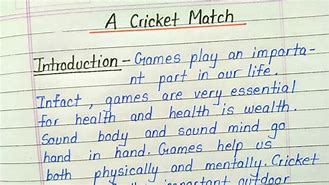 A Cricket Match
Introduction - Games play an importa-
nt part in our life.
Infact, games are very essential
for health and health is wealth.
Sound body and sound mind go
hand in hand. Games help us
both physically and mentally. Cricket
important outdoor